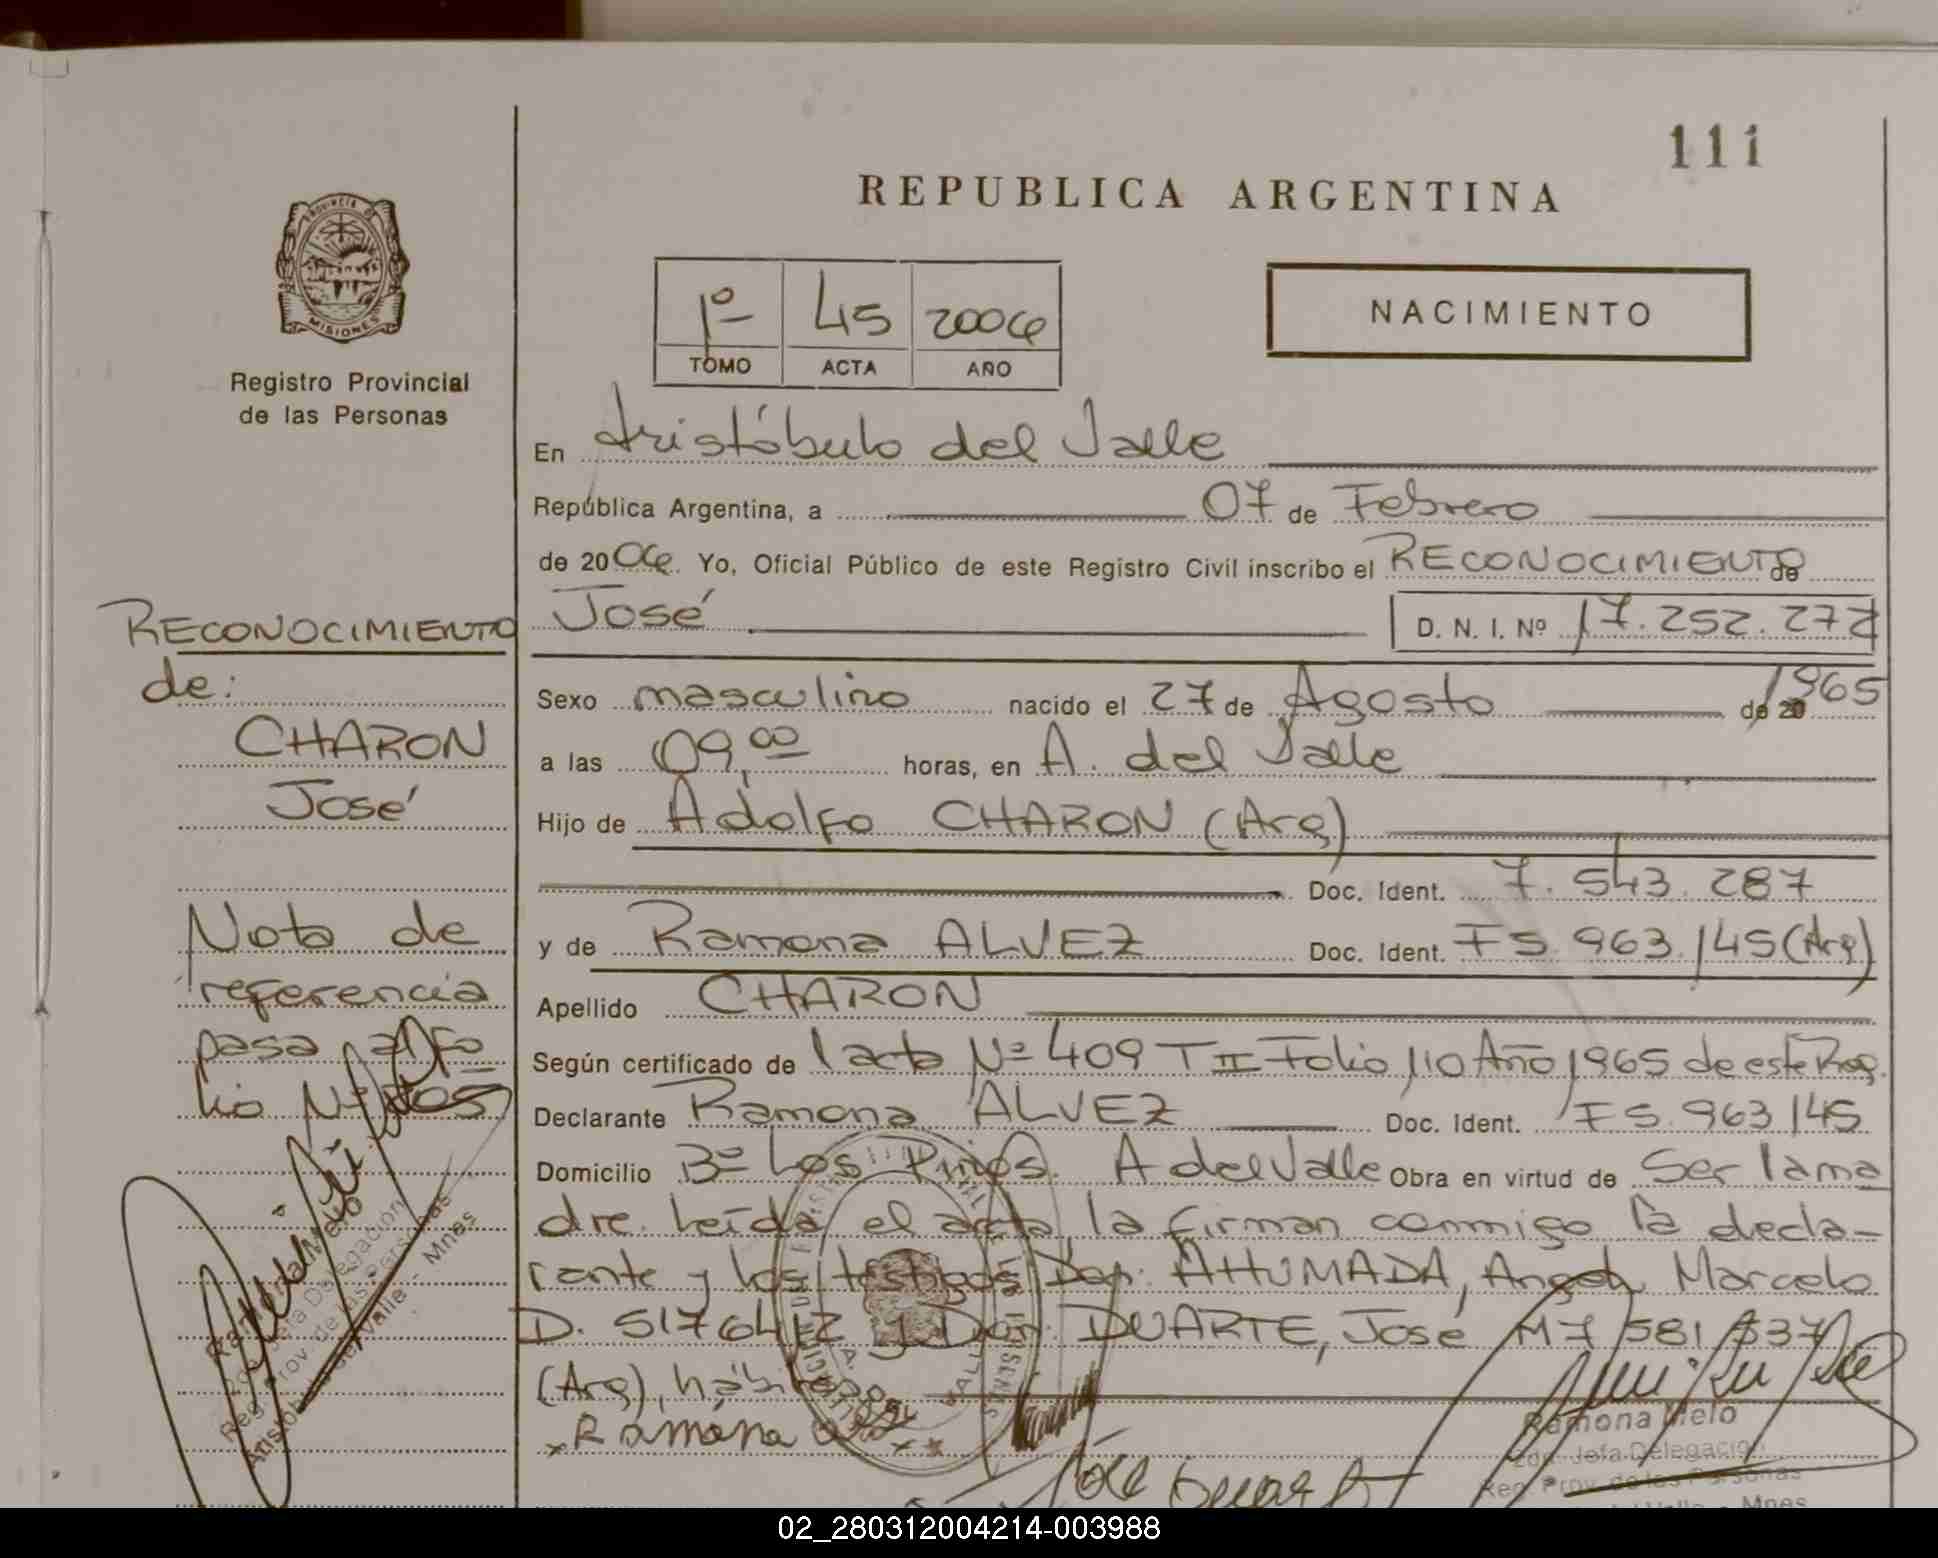 111
REPUBLICA ARGENTINA
PROVINCIA DE
MISIONES
Registro Provincial
de las Personas
1º 45 2006
TOMO ACTA AÑO
NACIMIENTO
En Aristóbulo del Valle
República Argentina, a 07 de Febrero
de 2006. Yo, Oficial Público de este Registro Civil inscribo el RECONOCIMIENTO de
José D. N. I. Nº 17.252.272
Sexo masculino nacido el 27 de Agosto de 20 1965
a las 09,00 horas, en A. del Valle
Hijo de Adolfo CHARON (Arg)
Doc. Ident. 7.543.287
y de Ramona ALVEZ Doc. Ident. F5.963.145 (Arg)
Apellido CHARON
Según certificado de l acta Nº 409 T II Folio 110 Año 1965 de este Reg.
Declarante Ramona ALVEZ Doc. Ident. F5.963.145
Domicilio Bº Los Pinos. A del Valle Obra en virtud de Ser la ma
dre. Leída el acta la firman conmigo la decla-
rante y los testigos Don: AHUMADA, Angel Marcelo
D. 5176412 y Don: DUARTE, José M7.581.837
(Arg), hábiles
x Ramona
José Duarte
Ramona Melo
Jefa Delegación
Reg. Prov. de las Personas
Valle - Mnes
RECONOCIMIENTO
de:
CHARON
José
Nota de
referencia
pasa al fo
lio Nº
Ramona Melo
Jefa Delegación
Reg. Prov. de las Personas
Aristóbulo del Valle - Mnes
02_280312004214-003988